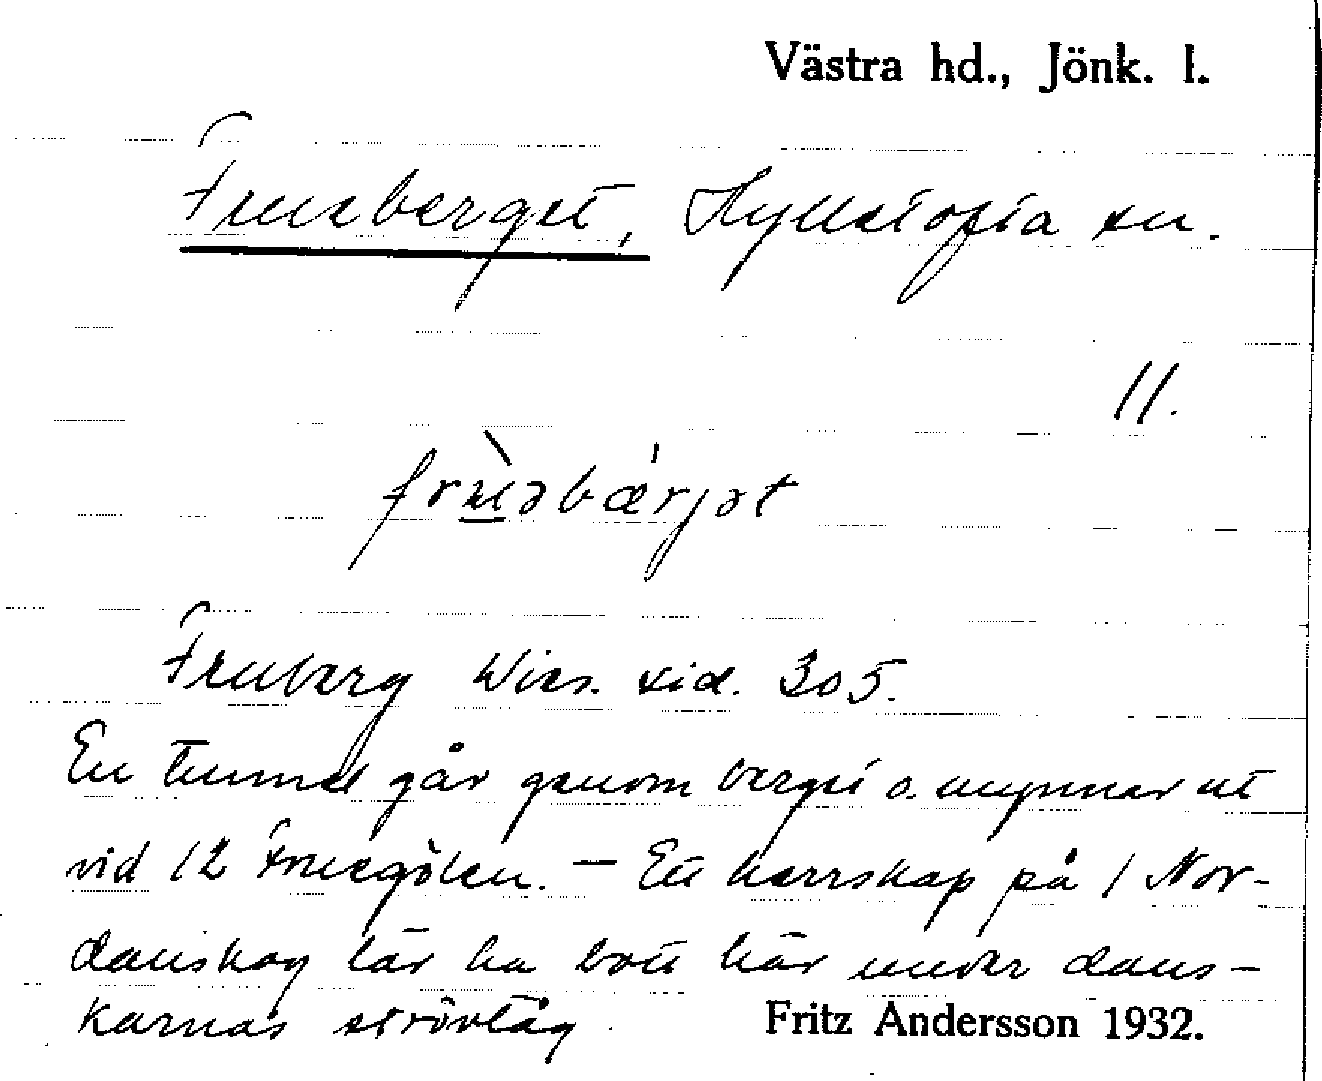 Västra hd., Jönk. l.
Frueberget, Hyllstofta sn.
11.
frùəbærjət
Fruberg Wies. sid. 305.
En tunnel går genom berget o. mynnar ut
vid 12 Fruegölen. — Ett herrskap på 1 Nor-
danskog lär ha bott här under dans-
karnas ströv­tåg. Fritz Andersson 1932.